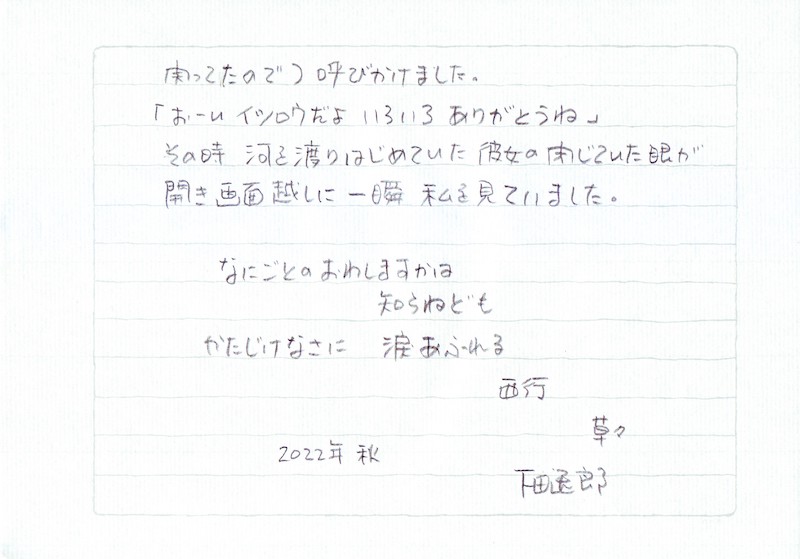 困ってたので) 呼びかけました。
「おーい イツロウだよ いろいろ ありがとうね」
その時 河を渡りはじめていた 彼女の閉じていた眼が
開き画面越しに 一瞬 私を見ていました。
なにごとのおわしますかは
知らねども
かたじけなさに 涙あふれる
西行
草々
2022年 秋
下田逸郎